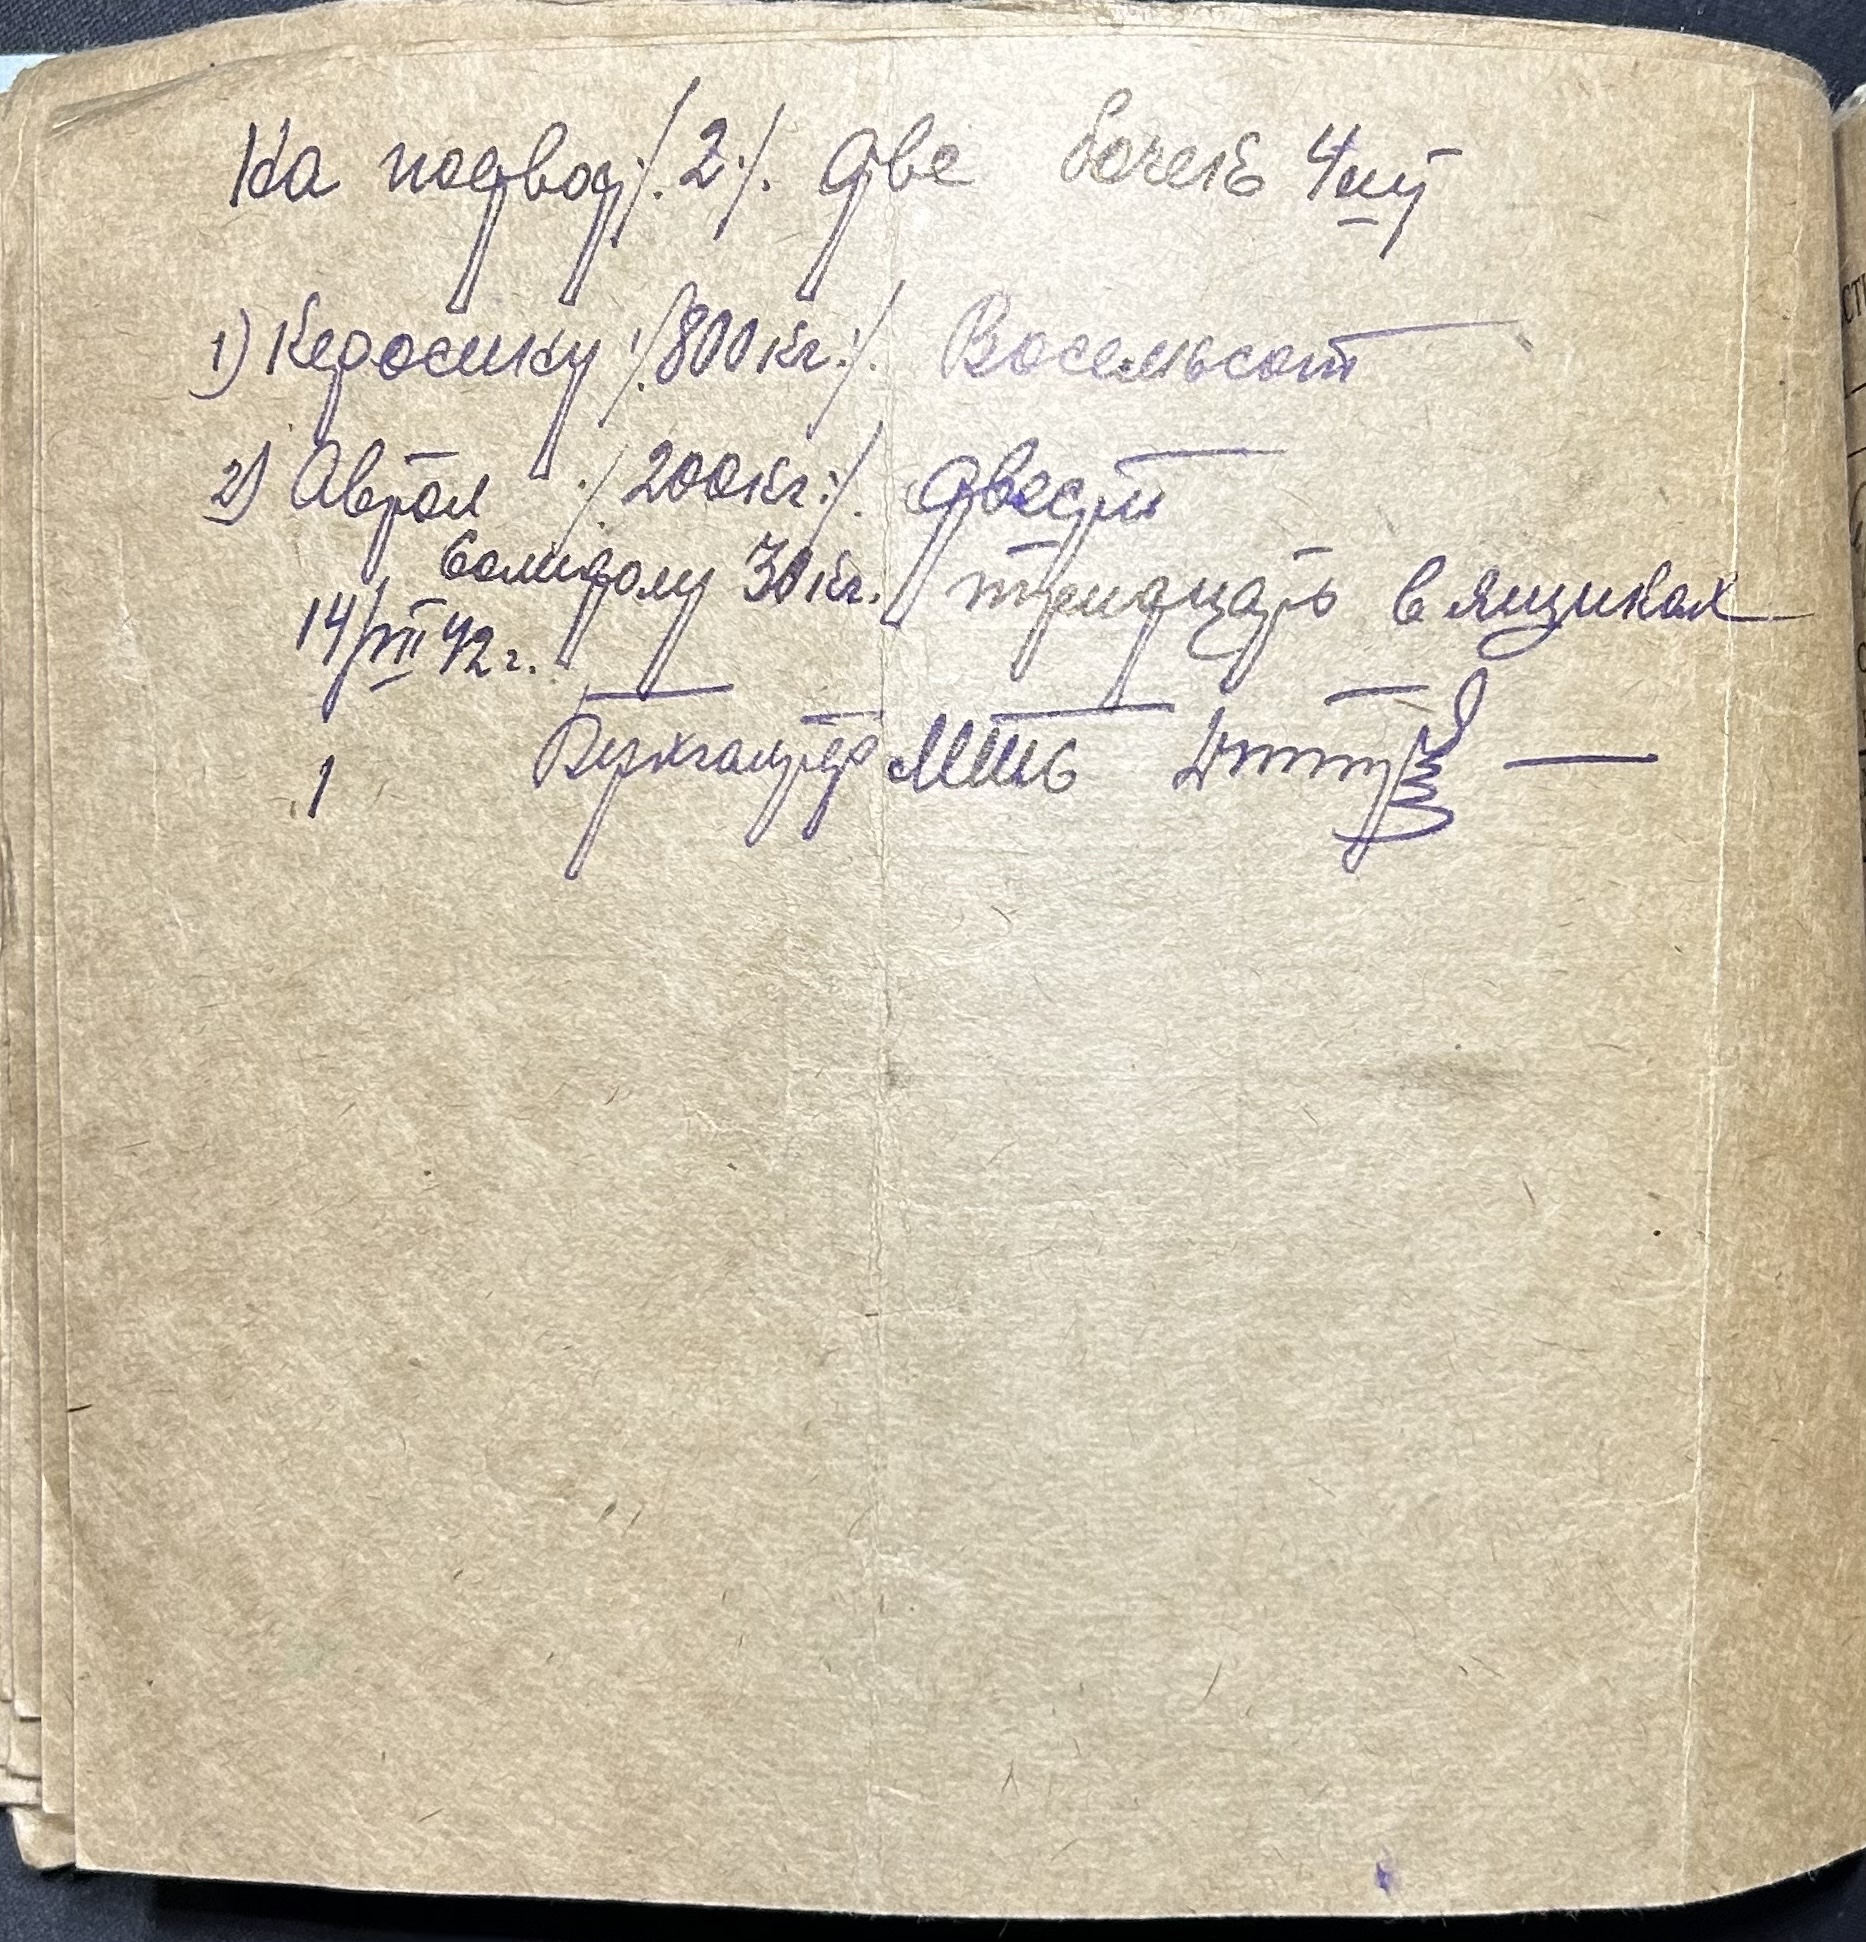 На подвод ./.2./. две бочек 4 шт
1) Керосину ./.800 кг./. Восемьсот
2) Автол ./.200 кг./. двести
Солидолу 30 кг. тридцать в ящиках
14/VIII 42 г.
Бухгалтер МТМ